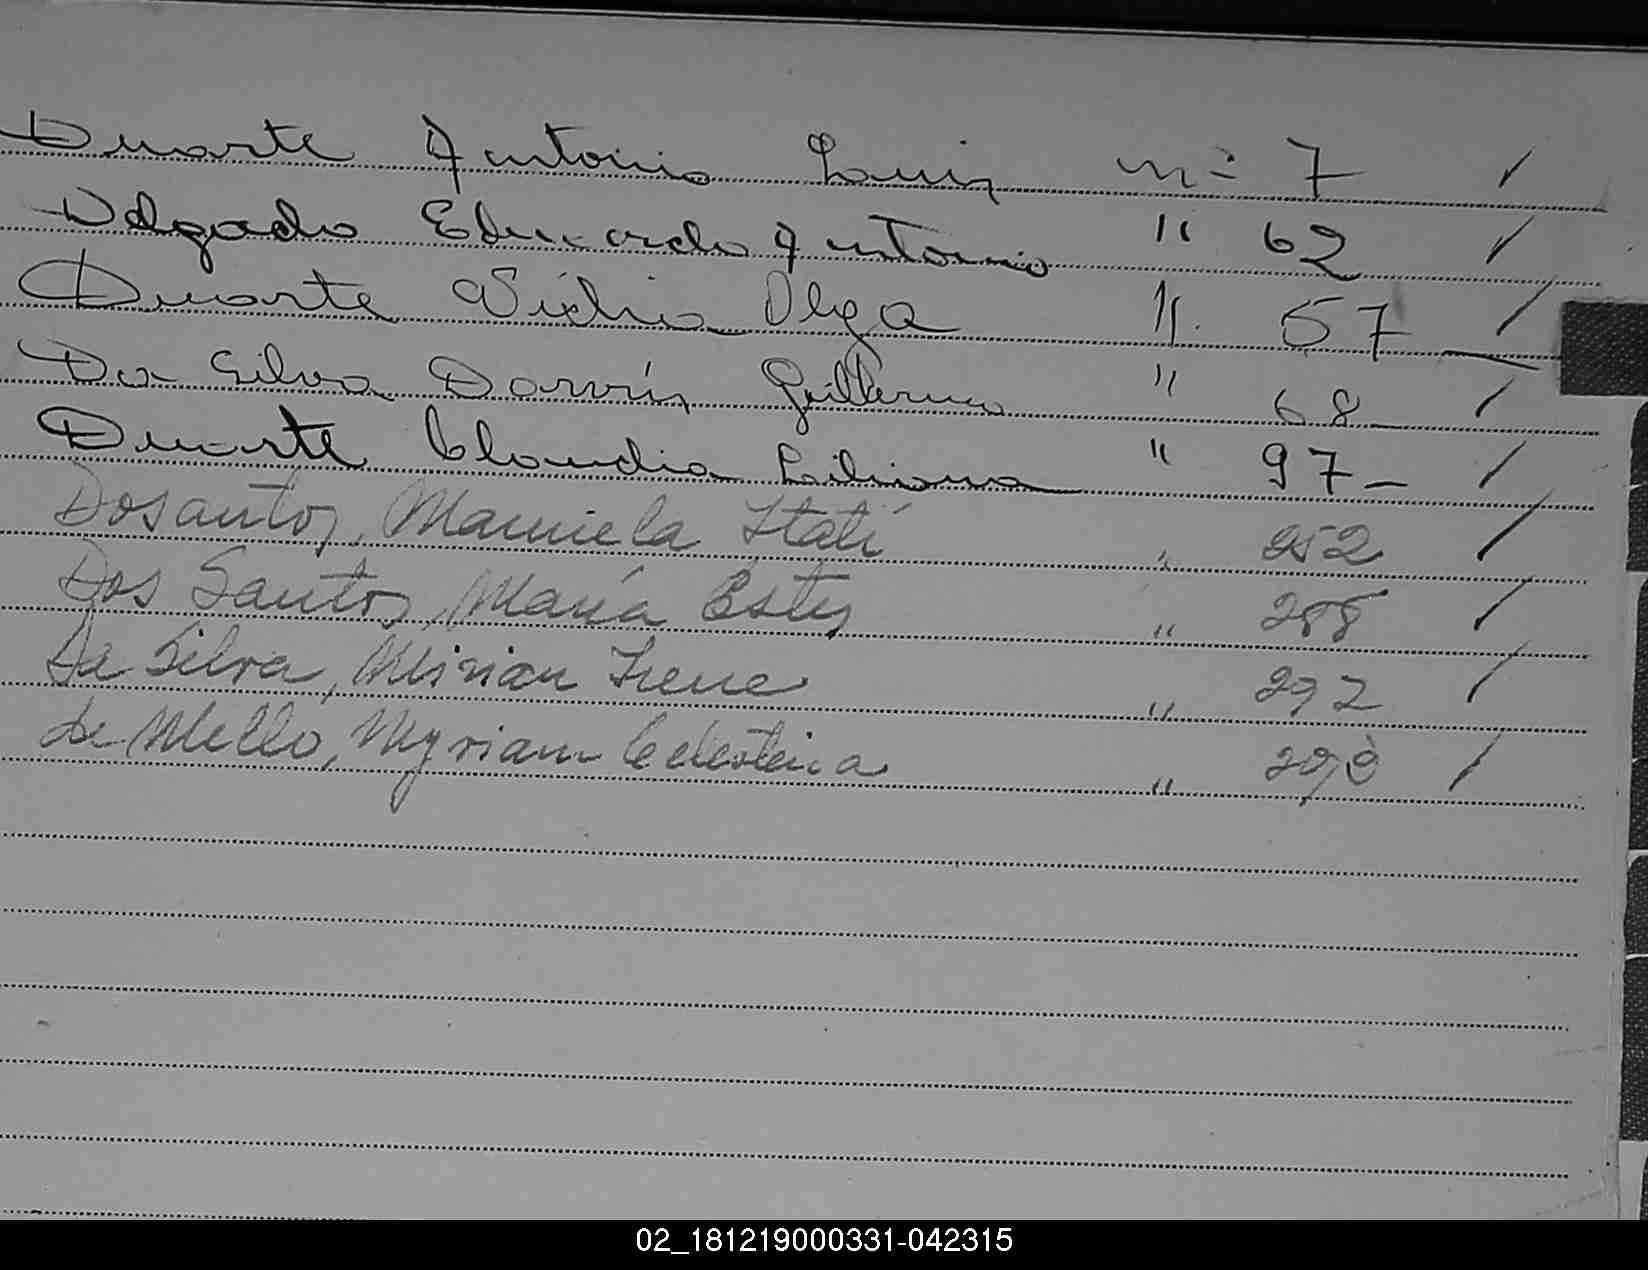 Duarte Antonio Luis nº 7 /
Delgado Eduardo Antonio " 62 /
Duarte Nidia Olga " 57 /
Da Silva Darvín Guillermo " 68 /
Duarte Claudia Liliana " 97 - /
Dosantos, Marniela Itatí " 252 /
Dos Santos, María Ester " 288 /
Da Silva, Mirian Irene " 292 /
de Mello, Myriam Celestina " /
02_181219000331-042315